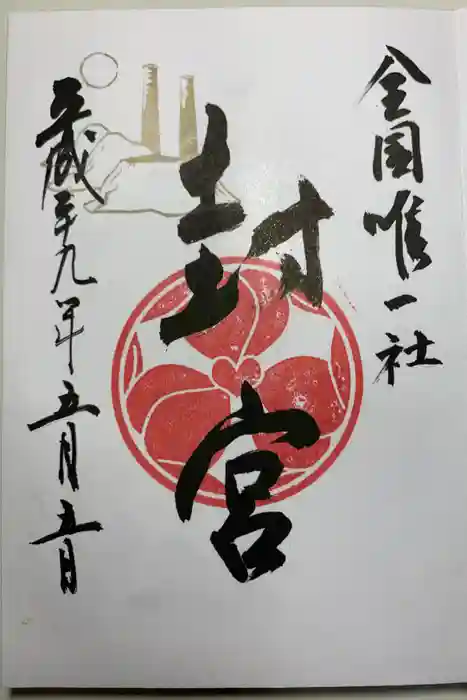 全国唯一社
封宮
平成二十九年五月五日